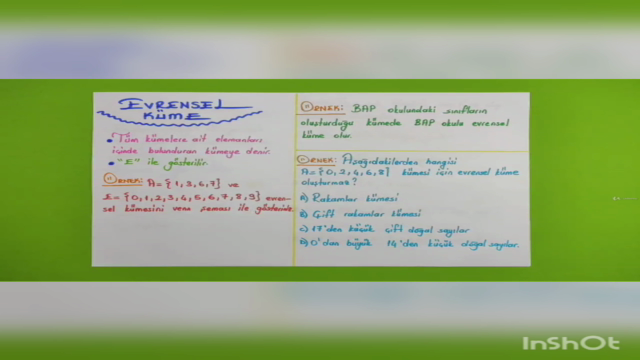 EVRENSEL
KÜME
• Tüm kümelere ait elemanları
içinde bulunduran kümeye denir.
• "E" ile gösterilir.
ÖRNEK: A={1,3,6,7} ve
E={0,1,2,3,4,5,6,7,8,9} evren-
sel kümesini venn şeması ile gösteriniz.
ÖRNEK: BAP okulundaki sınıfların
oluşturduğu kümede BAP okulu evrensel
küme olur.
ÖRNEK: Aşağıdakilerden hangisi
A={0,2,4,6,8} kümesi için evrensel küme
oluşturmaz?
A) Rakamlar kümesi
B) Çift rakamlar kümesi
C) 17'den küçük çift doğal sayılar
D) 0'dan büyük 14'den küçük doğal sayılar.
InShOt